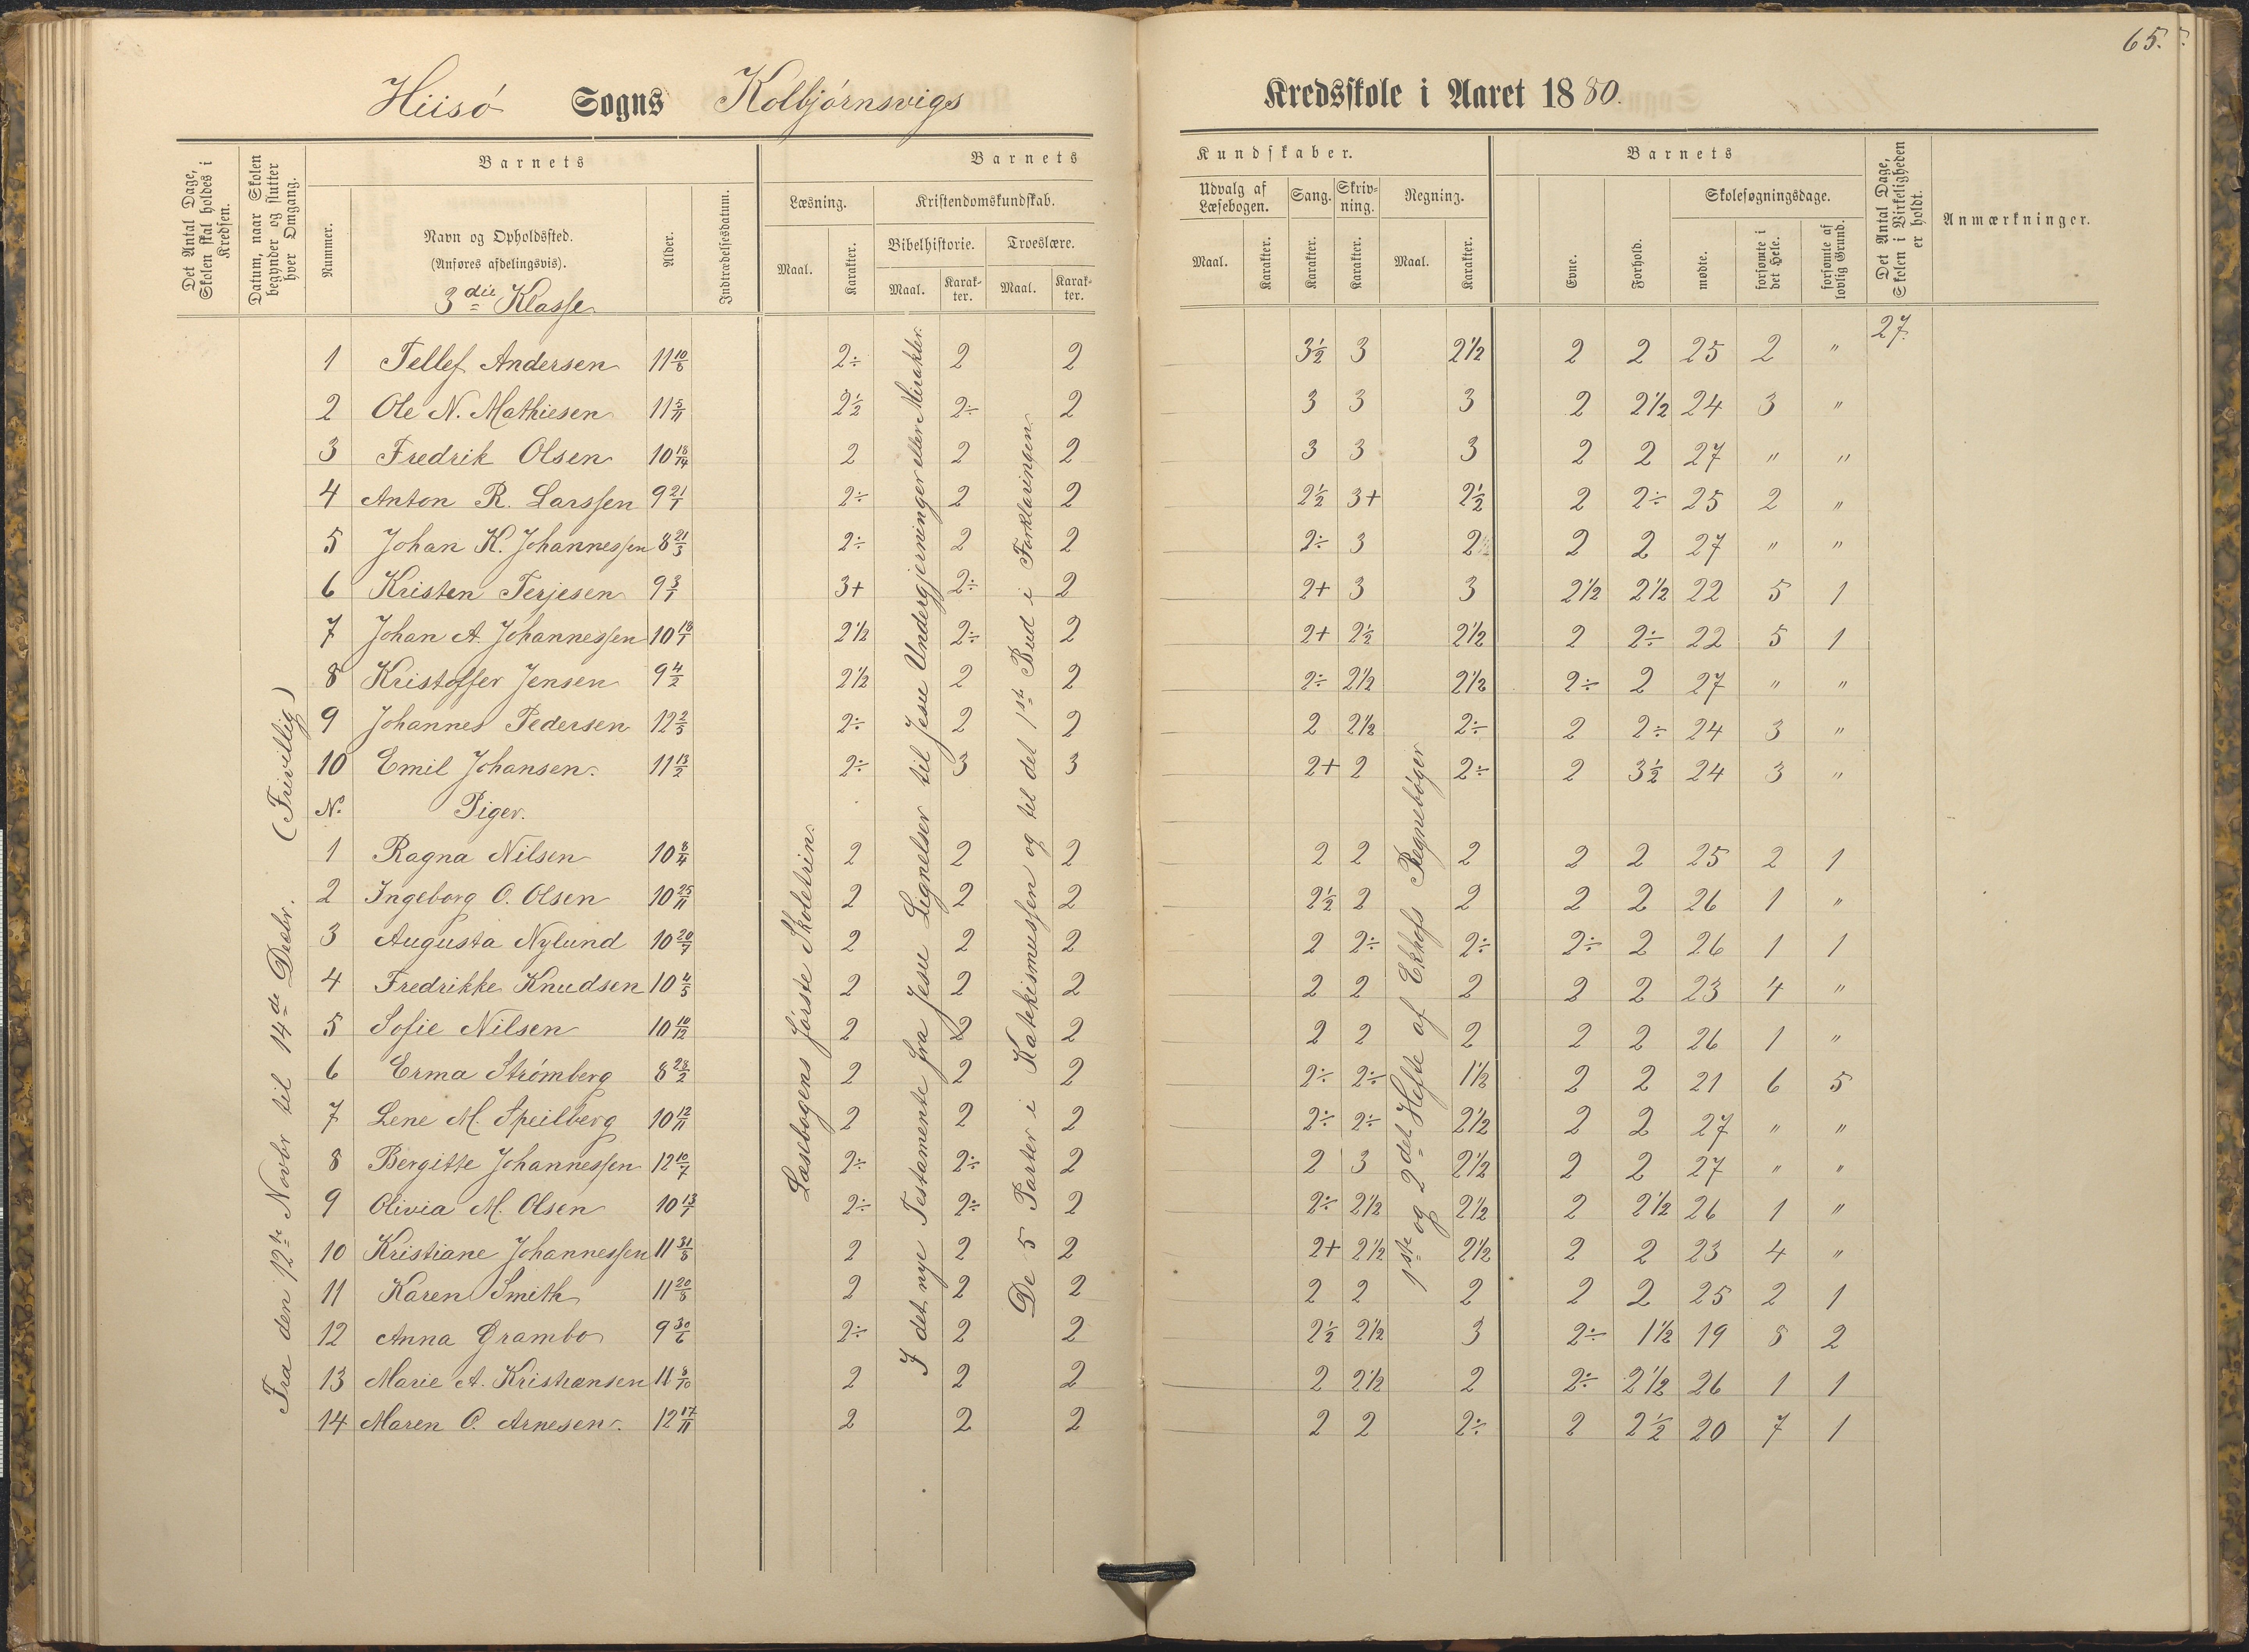 65.
Hiisø Sogns Kolbjørnsvigs Kredsskole i Aaret 1880.
Det Antal Dage, Skolen skal holdes i Kredsen.
Datum, naar Skolen begynder og slutter hver Omgang.
Barnets
Nummer.
Navn og Opholdssted.
(Anføres afdelingsvis).
3die Klasse
Alder.
Indtrædelsesdatum.
Barnets Kundskaber.
Læsning.
Maal.
Karakter.
Kristendomskundskab.
Bibelhistorie.
Maal.
Karakter.
Troeslære.
Maal.
Karakter.
Udvalg af Læsebogen.
Maal.
Karakter.
Sang.
Karakter.
Skrivning.
Karakter.
Regning.
Maal.
Karakter.
Barnets
Evne.
Forhold.
Skolesøgningsdage.
mødte.
forsømte i det Hele.
forsømte af lovlig Grund.
Det Antal Dage, Skolen i Virkeligheden er holdt.
Anmærkninger.
Fra den 12te Novbr til 14de Decbr. (Frivillig)
Læsebogens første Skoletrin.
I det nye Testamente fra Jesu Lignelser til Jesu Undergjerninger eller Mirakler.
De 5 Parter i Katekismussen og til det 1ste Bud i Forklaringen.
1ste og 2det Hefte af Ekhofs Regnebøger
27.
1 Tellef Andersen 11 10/8 2÷ 2 2 3½ 3 2½ 2 2 25 2 "
2 Ole N. Mathiesen 11 5/11 2½ 2÷ 2 3 3 3 2 2½ 24 3 "
3 Fredrik Olsen 10 18/14 2 2 2 3 3 3 2 2 27 " "
4 Anton R. Larssen 9 21/1 2÷ 2 2 2½ 3+ 2½ 2 2÷ 25 2 "
5 Johan K. Johannessen 8 21/3 2÷ 2 2 2÷ 3 2 2 2 27 " "
6 Kristen Terjesen 9 3/1 3+ 2÷ 2 2+ 3 3 2½ 2½ 22 5 1
7 Johan A. Johannessen 10 18/1 2½ 2÷ 2 2+ 2½ 2½ 2 2÷ 22 5 1
8 Kristoffer Jensen 9 4/2 2½ 2 2 2÷ 2½ 2½ 2÷ 2 27 " "
9 Johannes Pedersen 12 2/5 2÷ 2 2 2 2½ 2÷ 2 2÷ 24 3 "
10 Emil Johansen. 11 13/2 2÷ 3 3 2+ 2 2÷ 2 3½ 24 3 "
N. Piger.
1 Ragna Nilsen 10 8/4 2 2 2 2 2 2 2 2 25 2 1
2 Ingeborg O. Olsen 10 25/11 2 2 2 2½ 2 2 2 2 26 1 "
3 Augusta Nylund 10 20/7 2 2 2 2 2÷ 2÷ 2÷ 2 26 1 1
4 Fredrikke Knudsen 10 4/5 2 2 2 2 2 2 2 2 23 4 "
5 Sofie Nilsen 10 10/12 2 2 2 2 2 2 2 2 26 1 "
6 Erma Strømberg 8 28/2 2 2 2 2÷ 2÷ 1½ 2 2 21 6 5
7 Lene M. Speilberg 10 12/11 2 2 2 2÷ 2÷ 2½ 2 2 27 " "
8 Bergitte Johannessen 12 10/7 2÷ 2÷ 2 2 3 2½ 2 2 27 " "
9 Olivia M. Olsen 10 13/1 2÷ 2÷ 2 2÷ 2½ 2½ 2 2½ 26 1 "
10 Kristiane Johannessen 11 31/8 2 2 2 2+ 2½ 2½ 2 2 23 4 "
11 Karen Smith 11 20/8 2 2 2 2 2 2 2 2 25 2 1
12 Anna Grambo 9 30/6 2÷ 2 2 2½ 2½ 3 2÷ 1½ 19 8 2
13 Marie A. Kristiansen 11 8/10 2 2 2 2 2½ 2 2÷ 2½ 26 1 1
14 Maren O. Arnesen. 12 17/11 2 2 2 2 2 2÷ 2 2½ 20 7 1